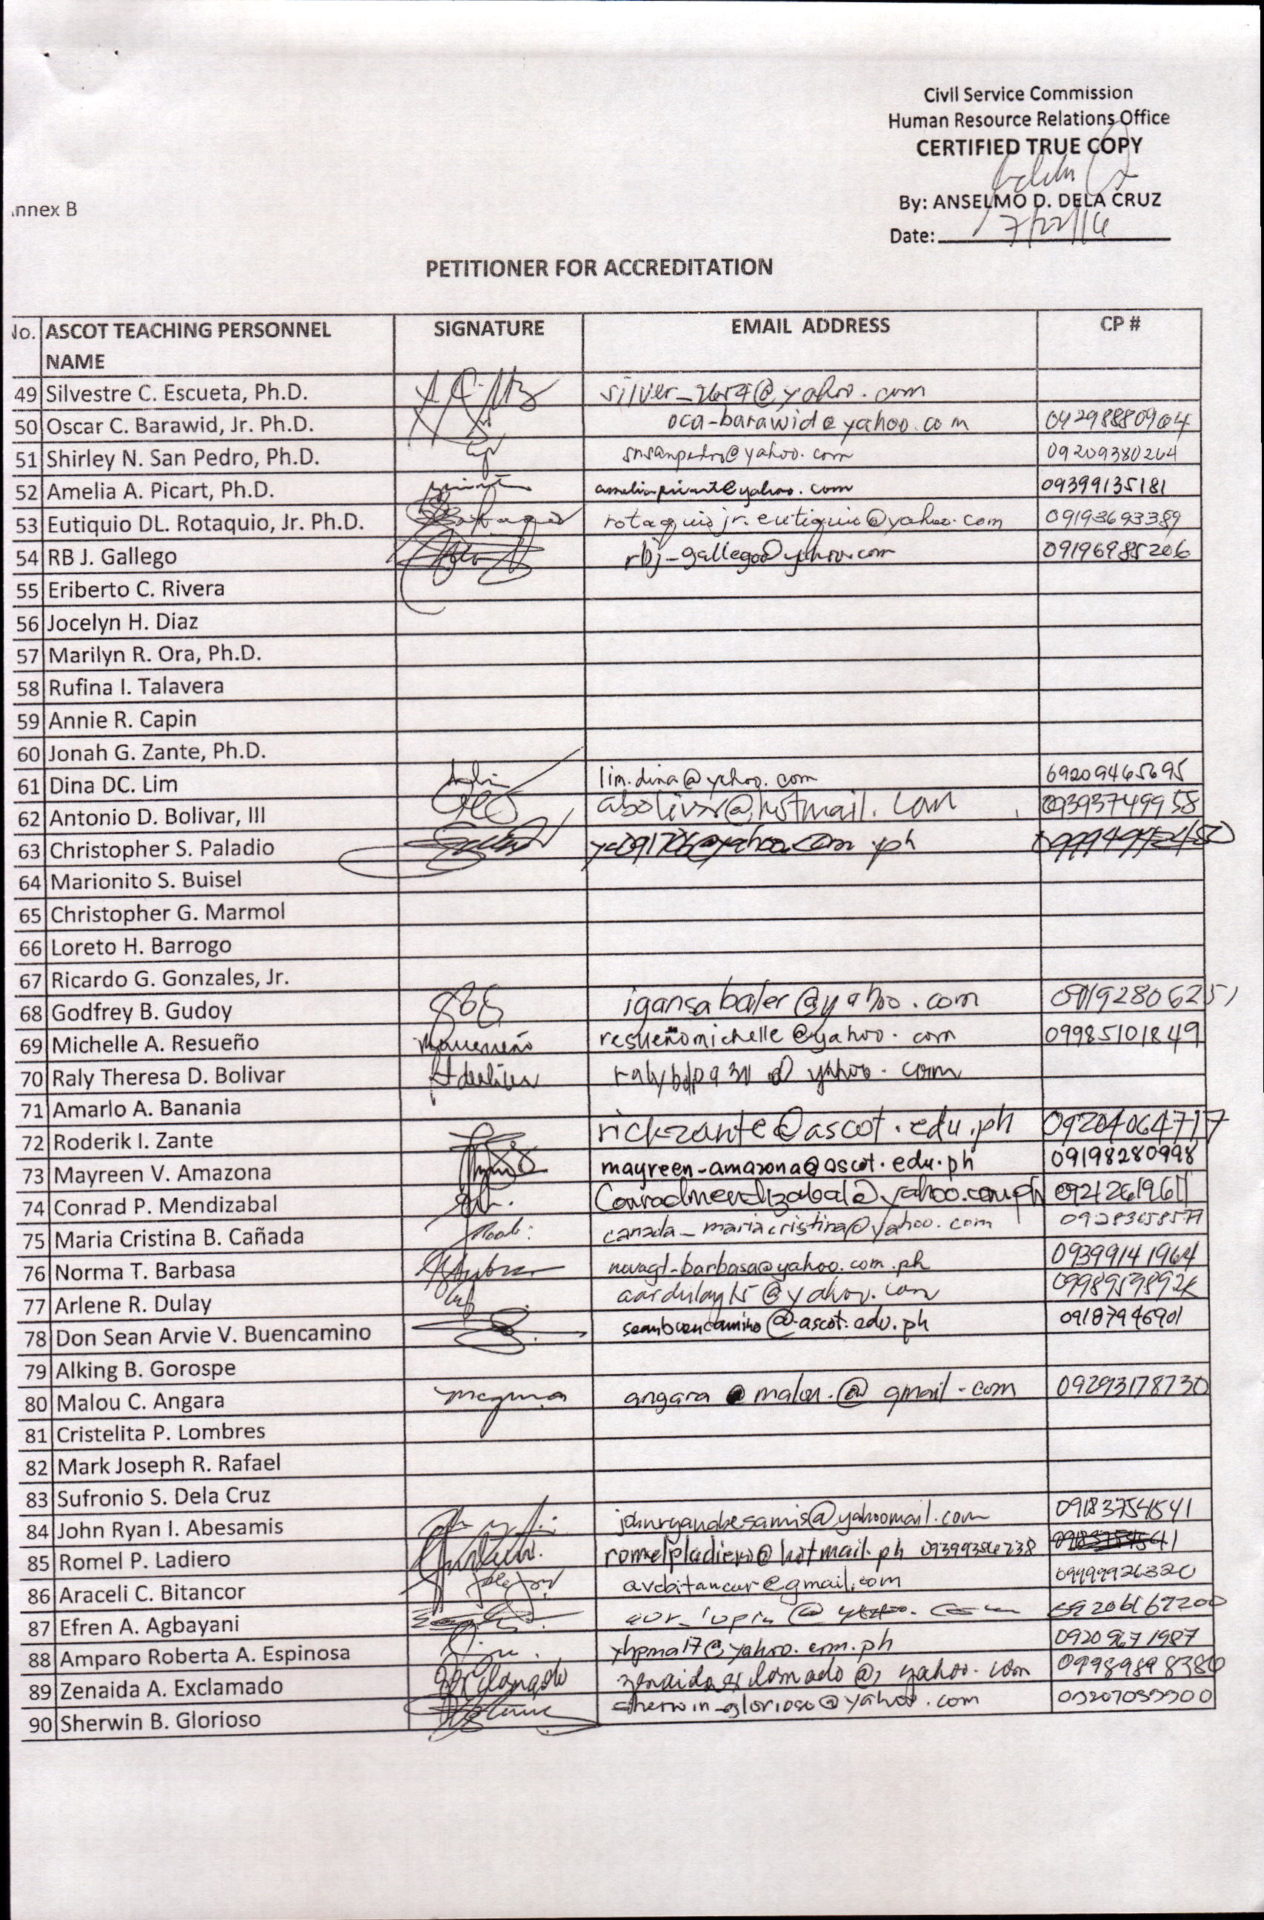 Civil Service Commission
Human Resource Relations Office
CERTIFIED TRUE COPY
By: ANSELMO D. DELA CRUZ
Date: 7/22/16
nnex B
PETITIONER FOR ACCREDITATION
No. ASCOT TEACHING PERSONNEL NAME SIGNATURE EMAIL ADDRESS CP #
49 Silvestre C. Escueta, Ph.D.
50 Oscar C. Barawid, Jr. Ph.D. oca-barawid@yahoo.com 04298880964
51 Shirley N. San Pedro, Ph.D. snsanpedro@yahoo.com 09209380264
52 Amelia A. Picart, Ph.D. 09399135181
53 Eutiquio DL. Rotaquio, Jr. Ph.D. rotaquiojr.eutiquio@yahoo.com 09193693389
54 RB J. Gallego rbj-gallego@yahoo.com 09196985206
55 Eriberto C. Rivera
56 Jocelyn H. Diaz
57 Marilyn R. Ora, Ph.D.
58 Rufina I. Talavera
59 Annie R. Capin
60 Jonah G. Zante, Ph.D.
61 Dina DC. Lim lim.dina@yahoo.com 09209465695
62 Antonio D. Bolivar, III abolivar@hotmail.com 09393749958
63 Christopher S. Paladio
64 Marionito S. Buisel
65 Christopher G. Marmol
66 Loreto H. Barrogo
67 Ricardo G. Gonzales, Jr.
68 Godfrey B. Gudoy igansabaler@yahoo.com
69 Michelle A. Resueño resueñomichelle@yahoo.com 09985101849
70 Raly Theresa D. Bolivar
71 Amarlo A. Banania
72 Roderik I. Zante rickzante@ascot.edu.ph 09204064717
73 Mayreen V. Amazona mayreen-amazona@ascot.edu.ph 09198280998
74 Conrad P. Mendizabal Conradmendizabal@yahoo.com.ph 09212619611
75 Maria Cristina B. Cañada canada_mariacristina@yahoo.com
76 Norma T. Barbasa 09399141964
77 Arlene R. Dulay
78 Don Sean Arvie V. Buencamino seanbuencamino@ascot.edu.ph 09187946901
79 Alking B. Gorospe
80 Malou C. Angara angara malou @ gmail.com 09293178730
81 Cristelita P. Lombres
82 Mark Joseph R. Rafael
83 Sufronio S. Dela Cruz
84 John Ryan I. Abesamis johnryanabesamis@yahoomail.com 09183754541
85 Romel P. Ladiero romelpladiero@hotmail.ph 09399386238
86 Araceli C. Bitancor arcbitancor@gmail.com
87 Efren A. Agbayani
88 Amparo Roberta A. Espinosa yhpma17@yahoo.com.ph 09209671987
89 Zenaida A. Exclamado
90 Sherwin B. Glorioso sherwin_glorioso@yahoo.com